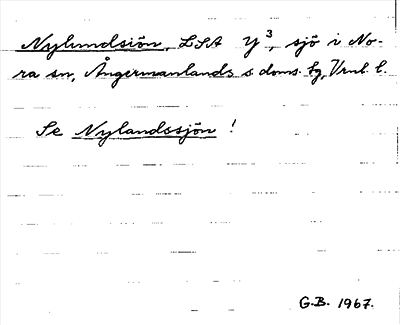 Nylundsiön, LSA Y³, sjö i No-
ra sn, Ångermanlands s doms. fg, Vrnl. l.
Se Nylandssjön !
G.B. 1967.